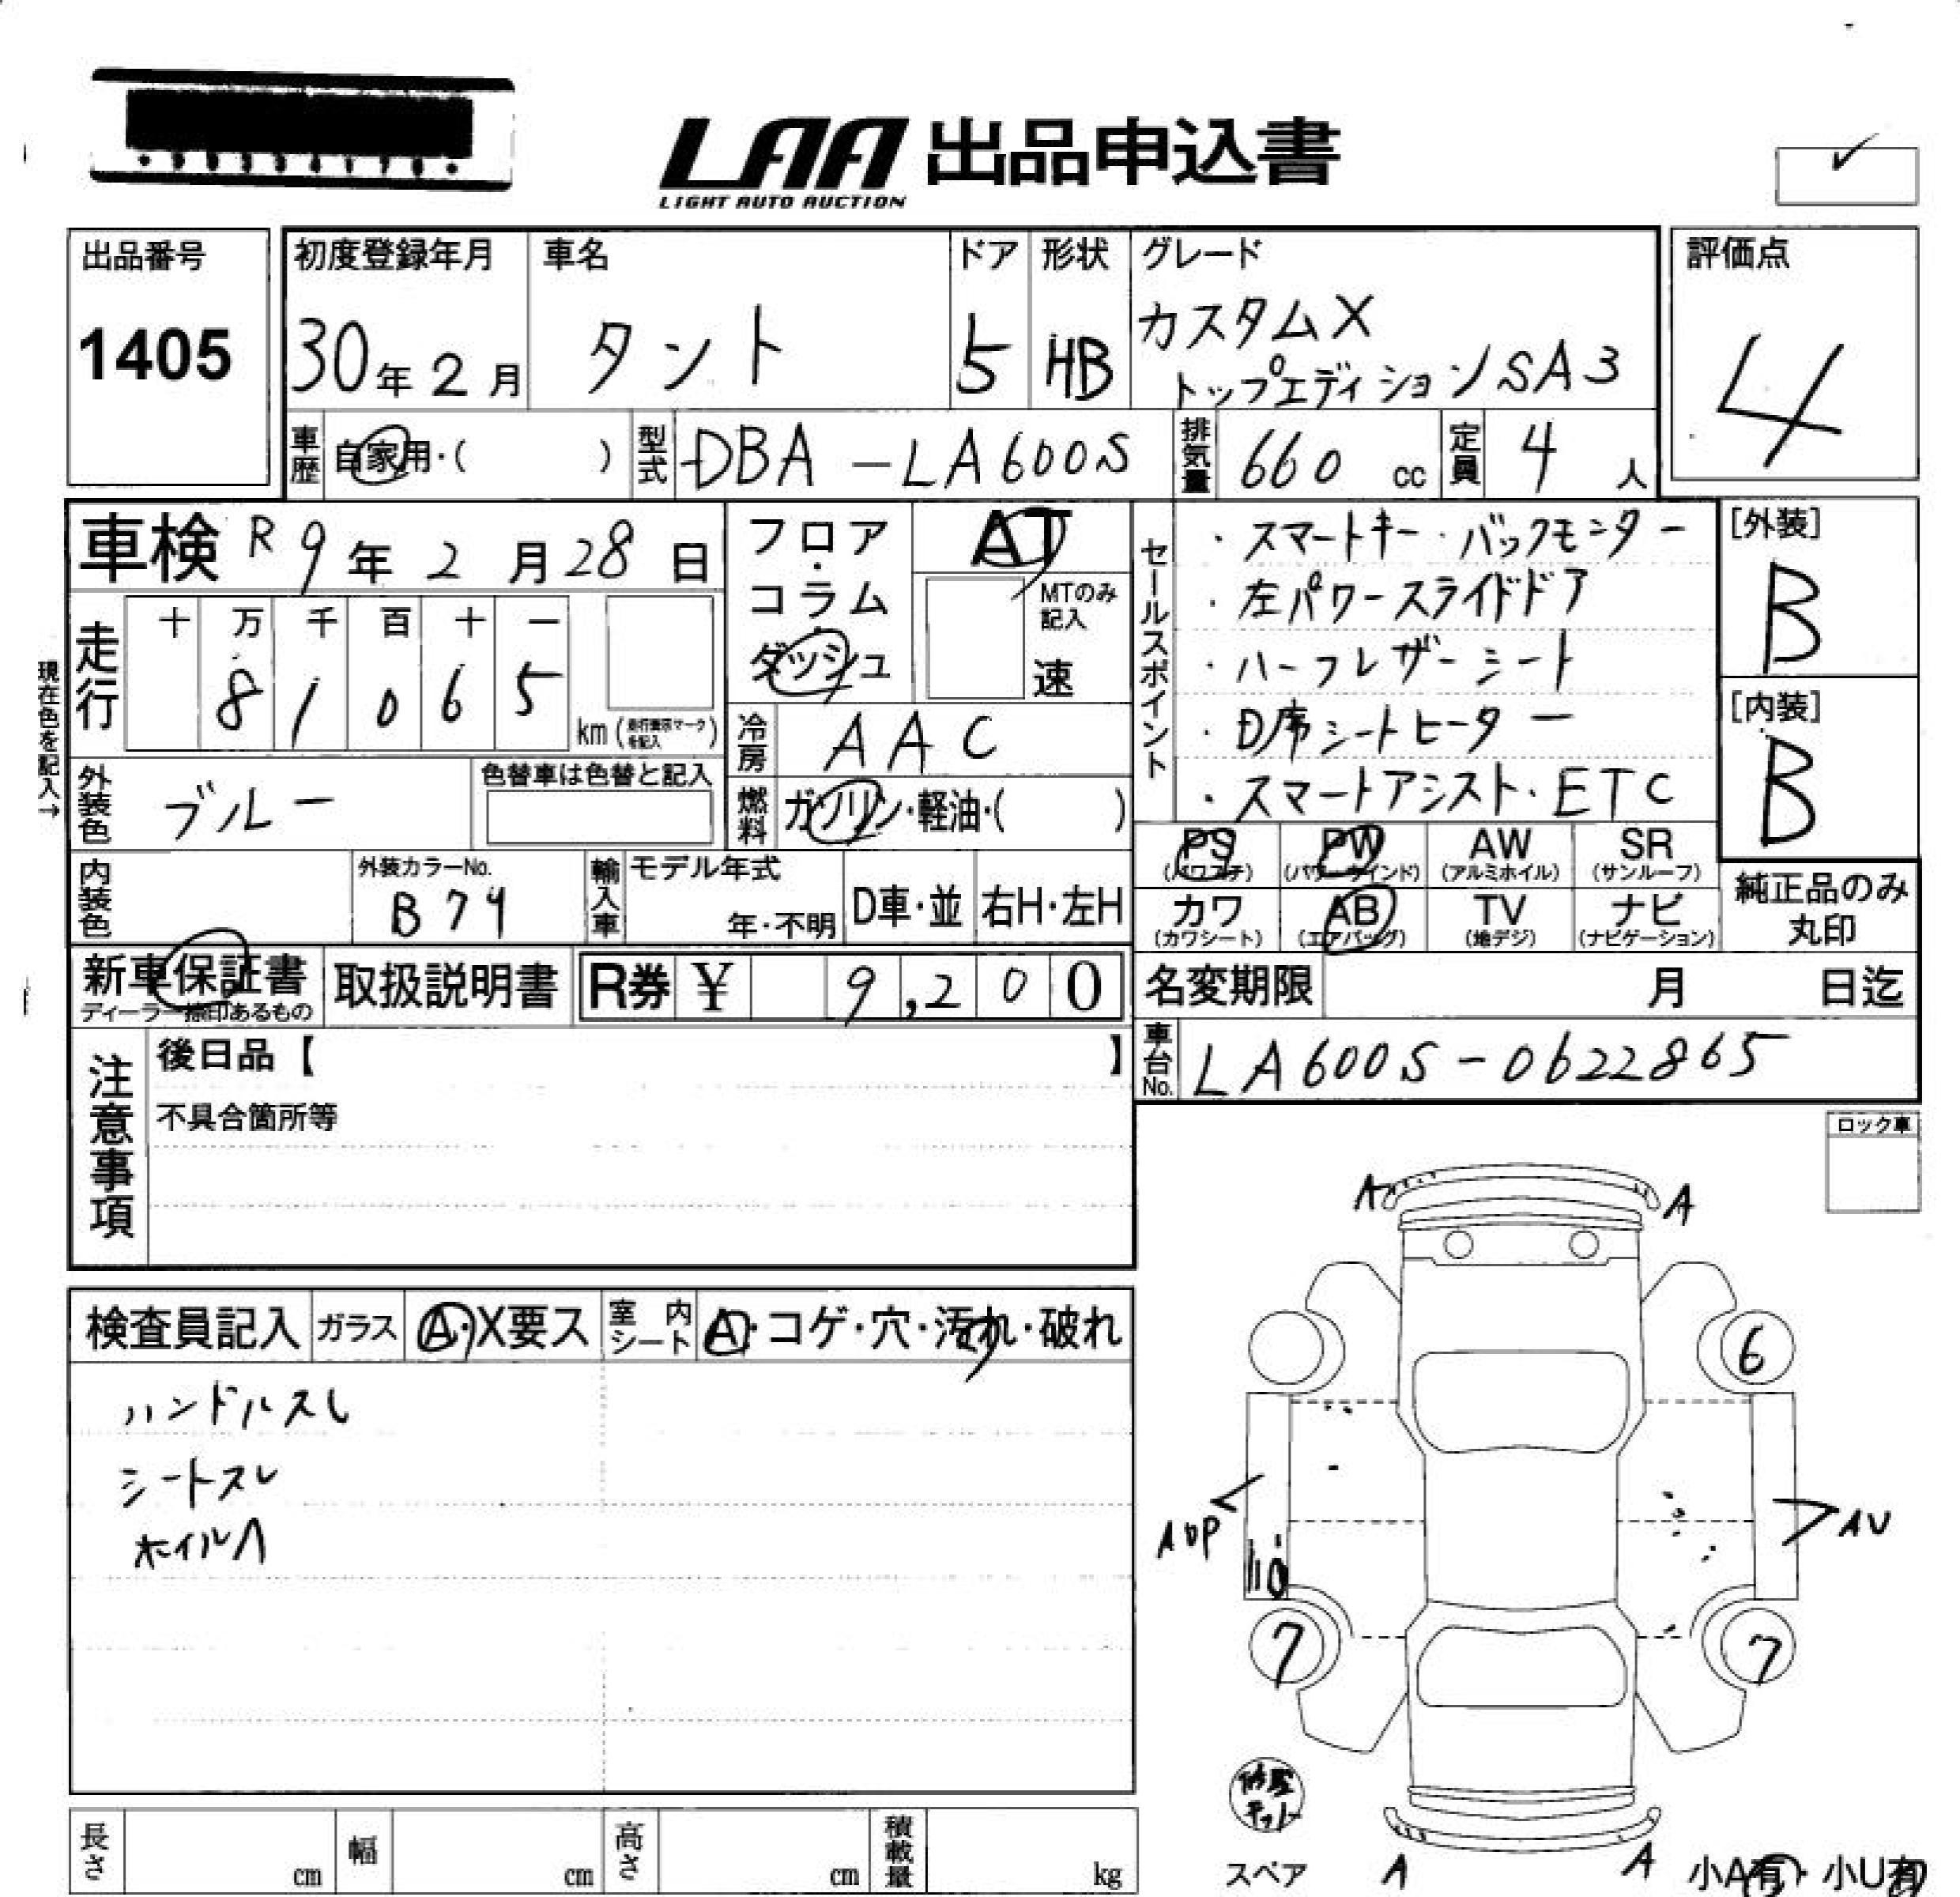 LAA 出品申込書
LIGHT AUTO AUCTION
出品番号
1405
初度登録年月
30年2月
車名
タント
ドア
5
形状
HB
グレード
カスタムX
トップエディションSA3
評価点
4
車歴
自家用・( )
型式
DBA-LA600S
排気量
660 cc
定員
4 人
車検 R9年2月28日
走行
十 万 千 百 十 一
8 1 0 6 5
km(走行表示マークを記入)
現在色を記入→
外装色
ブルー
色替車は色替と記入
内装色
外装カラーNo.
B79
輸入車
モデル年式
年・不明
D車・並
右H・左H
フロア・コラム・ダッシュ
AT
MTのみ記入
速
冷房
AAC
燃料
ガソリン・軽油・( )
セールスポイント
・スマートキー・バックモニター
・左パワースライドドア
・ハーフレザーシート
・D席シートヒーター
・スマートアシスト・ETC
[外装]
B
[内装]
B
PS
(パワステ)
PW
(パワーウインド)
AW
(アルミホイル)
SR
(サンルーフ)
カワ
(カワシート)
AB
(エアバッグ)
TV
(地デジ)
ナビ
(ナビゲーション)
純正品のみ
丸印
新車保証書
ディーラー捺印あるもの
取扱説明書
R券 ¥ 9,200
名変期限 月 日迄
車台No.
LA600S-0622865
注意事項
後日品【 】
不具合箇所等
ロック車
検査員記入
ガラス
A・X要ス
室内シート
A・コゲ・穴・汚れ・破れ
ハンドルスレ
シートスレ
ホイルA
A
A
6
AUP
AU
10
7
7
A
A
スペア
小A有・小U有
長さ cm
幅 cm
高さ cm
積載量 kg